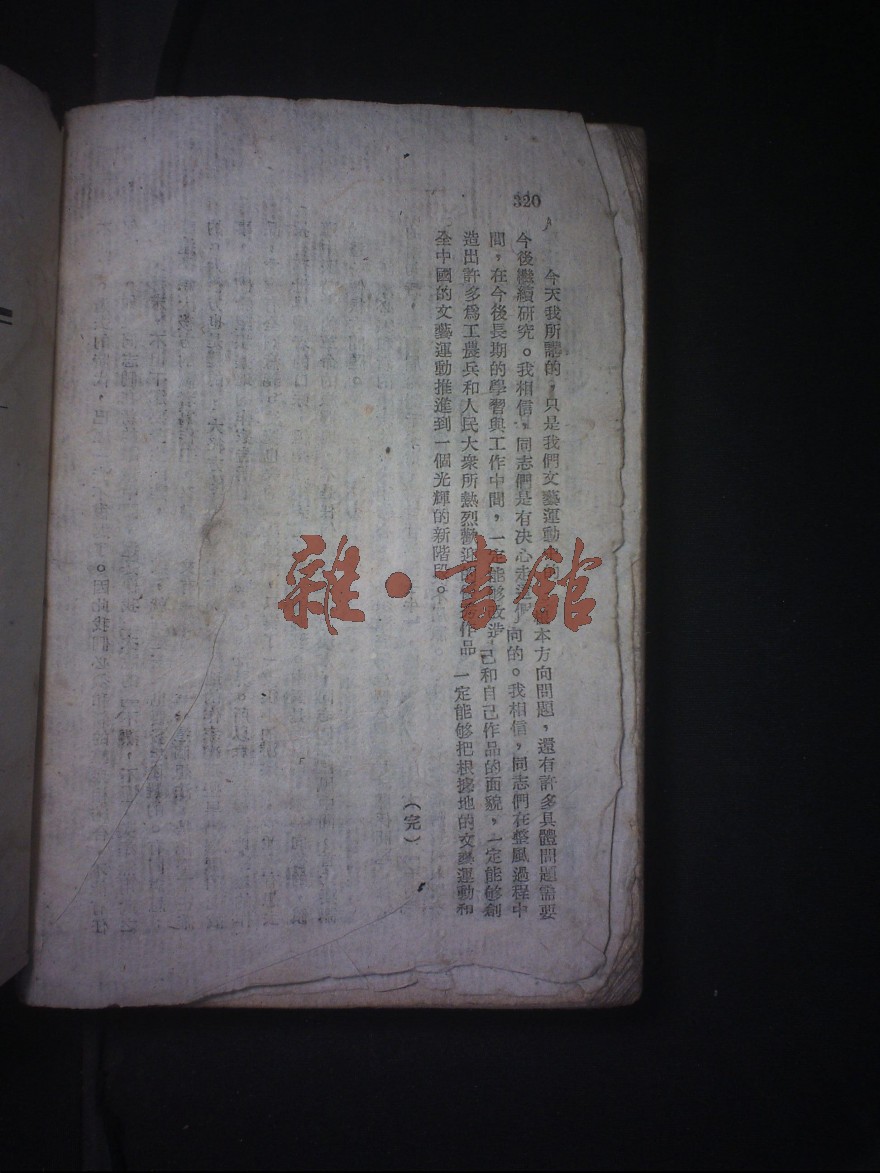 320
今天我所講的，只是我們文藝運動中的根本方向問題，還有許多具體問題需要
今後繼續研究。我相信，同志們是有决心走這個方向的。我相信，同志們在整風過程中
間，在今後長期的學習與工作中間，一定能够改造自己和自己作品的面貌，一定能够創
造出許多爲工農兵和人民大衆所熱烈歡迎的優秀作品，一定能够把根據地的文藝運動和
全中國的文藝運動推進到一個光輝的新階段。
（完）
雜·書館